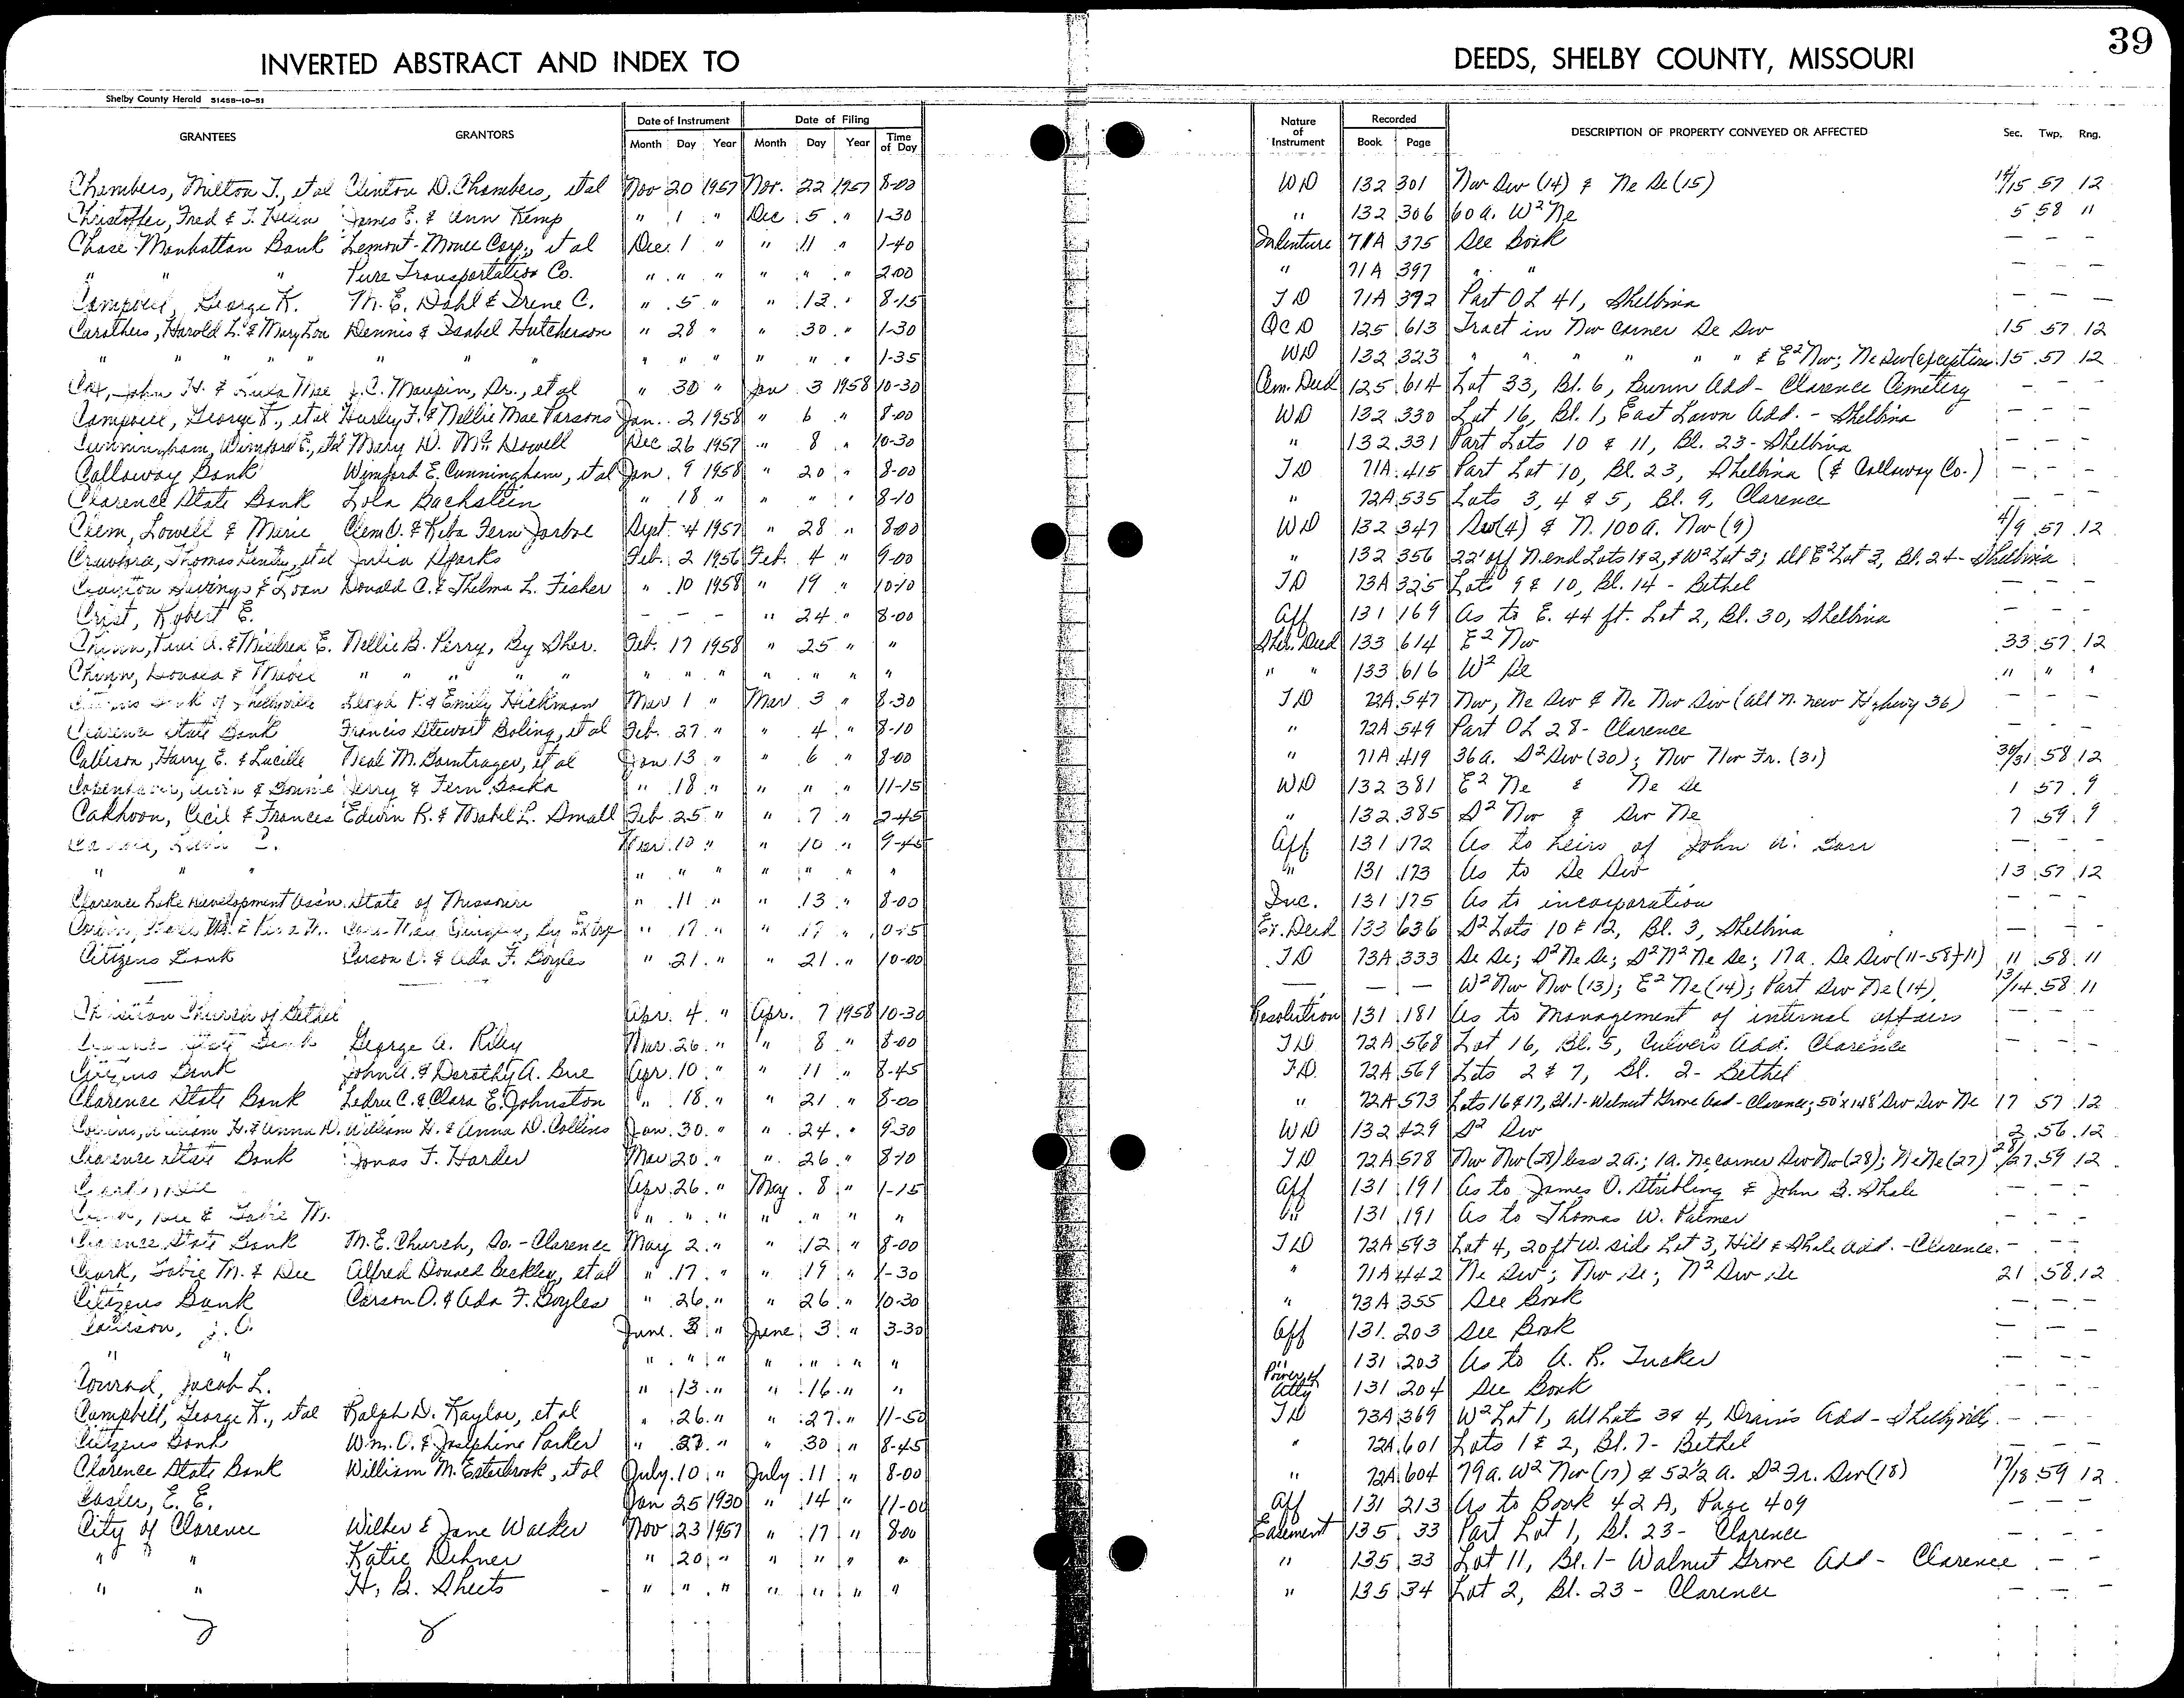 39
INVERTED ABSTRACT AND INDEX TO DEEDS, SHELBY COUNTY, MISSOURI
Shelby County Herald 51458-10-51
GRANTEES GRANTORS Date of Instrument Date of Filing Nature of Instrument Recorded DESCRIPTION OF PROPERTY CONVEYED OR AFFECTED Sec. Twp. Rng.
Month Day Year Month Day Year Time of Day Book Page
Chambers, Milton T., et al Clinton D. Chambers, et al Nov 20 1957 Nov. 22 1957 8-00 WD 132 301 Nw Sw (14) & Ne Se (15) 14/15 57 12
Christoffer, Fred & T. Helen James E. & Ann Kemp " 1 " Dec 5 " 1-30 " 132 306 60 a. W² Ne 5 58 11
Chase Manhattan Bank Lemont- Corp., et al Dec. 1 " " 11 " 1-40 Indenture 71A 375 See Book — — —
" " " Pure Transportation Co. " " " " " " 2-00 " 71A 397 " " — — —
Campbell, George K. M. E. Dahl & Irene C. " 5 " " 13 " 8-15 TD 71A 392 Part OL 41, Shelbina — — —
Carothers, Harold L. & Mary Lou Dennis & Isabel Hutcherson " 28 " " 30 " 1-30 QCD 125 613 Tract in Nw corner Se Sw 15 57 12
" " " " " " " " " " " " " " 1-35 WD 132 323 " " " " " " & E² Nw; Ne Sw (exception 15 57 12
Cox, John H. & Lula Mae J. C. Maupin, Sr., et al " 30 " Jan 3 1958 10-30 Cem. Deed 125 614 Lot 33, Bl. 6, Bunn Add - Clarence Cemetery — — —
Campbell, George K., et al Hurley F. & Nellie Mae Parsons Jan. 2 1958 " 6 " 8-00 WD 132 330 Lot 16, Bl. 1, East Lawn Add. - Shelbina — — —
Cunningham, Wimford E., et al Mary D. McDowell Dec 26 1957 " 8 " 10-30 " 132 331 Part Lots 10 & 11, Bl. 23 - Shelbina — — —
Callaway Bank Wimford E. Cunningham, et al Jan. 9 1958 " 20 " 8-00 TD 71A 415 Part Lot 10, Bl. 23, Shelbina (& Callaway Co.) — — —
Clarence State Bank Lola Bachstein " 18 " " " " 8-10 " 72A 535 Lots 3, 4 & 5, Bl. 9, Clarence — — —
Clem, Lowell & Marie Clem O. & Reba Fern Jarboe Sept. 4 1957 " 28 " 8-00 WD 132 347 Sw (4) & N. 100 a. Nw (9) 4/9 57 12
Crawford, Thomas , et al Julia Sparks Feb. 2 1956 Feb. 4 " 9-00 " 132 356 22' off N. end Lots 1 & 2, & W² Lot 3; all E² Lot 3, Bl. 24 - Shelbina
Savings & Loan Donald C. & Thelma L. Fisher " 10 1958 " 19 " 10-10 TD 73A 325 Lots 9 & 10, Bl. 14 - Bethel — — —
Crist, Robert E. — — — " 24 " 8-00 Aff 131 169 As to E. 44 ft. Lot 2, Bl. 30, Shelbina — — —
Chinn, A. & Mildred E. Nellie B. Perry, By Sher. Feb. 17 1958 " 25 " " Sher. Deed 133 614 E² Nw 33 57 12
Chinn, & " " " " " " " " " " " " " " 133 616 W² Se " " "
Bank of Shelbyville Lloyd P. & Emily Hickman Mar 1 " Mar 3 " 8-30 TD 72A 547 Nw, Ne Sw & Ne Nw Sw (all N. new Highway 36) — — —
Clarence State Bank Francis Stewart Boling, et al Feb. 27 " " 4 " 8-10 " 72A 549 Part OL 28 - Clarence — — —
Callison, Harry E. & Lucille Neal M. Borntrager, et al Jan. 13 " " 6 " 8-00 " 71A 419 36 a. S² Sw (30); Nw Nw Fr. (31) 30/31 58 12
Copenhaver, & Bonnie & Fern " 18 " " " " 11-15 WD 132 381 E² Ne & Ne Se 1 57 9
Calhoon, Cecil & Frances Edwin R. & Mabel L. Small Feb 25 " " 7 " 2-45 " 132 385 S² Nw & Sw Ne 7 59 9
Mar. 10 " " 10 " 9-45 Aff 131 172 As to heirs of John A. — — —
" " " " " " " " " " " 131 173 As to Se Sw 13 57 12
Clarence Lake Development Ass'n. State of Missouri " 11 " " 13 " 8-00 Inc. 131 175 As to incorporation — — —
by Extrx " 17 " " 17 " 10-15 Ex. Deed 133 636 S² Lots 10 & 12, Bl. 3, Shelbina — — —
Citizens Bank Carson O. & Ada F. Boyles " 21 " " 21 " 10-00 TD 73A 333 Se Se; S² Ne Se; S² N² Ne Se; 17 a. Se Sw (11-58-11) 11 58 11
— — — — — W² Nw Nw (13); E² Ne (14); Part Sw Ne (14) 13/14 58 11
Christian Church of Bethel Apr. 4 " Apr. 7 1958 10-30 Resolution 131 181 As to Management of internal affairs — — —
Clarence State Bank George A. Riley Mar. 26 " " 8 " 8-00 TD 72A 568 Lot 16, Bl. 5, Culver's Add. Clarence — — —
Citizens Bank John A. & Dorothy A. Bue Apr. 10 " " 11 " 8-45 TD 72A 569 Lots 2 & 7, Bl. 2 - Bethel — — —
Clarence State Bank Ledru C. & Clara E. Johnston " 18 " " 21 " 8-00 " 72A 573 Lots 16 & 17, Bl. 1 - Walnut Grove Add - Clarence; 50' x 148' Sw Sw Ne 17 57 12
Collins, William H. & Anna D. William H. & Anna D. Collins Jan. 30 " " 24 " 9-30 WD 132 429 S² Sw 2 56 12
Clarence State Bank Jonas F. Harder Mar 20 " " 26 " 8-10 TD 72A 578 Nw Nw (28) less 2 a.; 1a. Ne corner Sw Nw (28); Ne Ne (27) 28/27 59 12
Apr. 26 " May 8 " 1-15 Aff 131 191 As to James O. Stribling & John B. Shale — — —
" " " " " " " " 131 191 As to Thomas W. Palmer — — —
Clarence State Bank M. E. Church, So. - Clarence May 2 " " 12 " 8-00 TD 72A 593 Lot 4, 20 ft W. side Lot 3, Hill & Shale Add. - Clarence — — —
Clark, Tobie M. & Dee Alfred Donald Beckley, et al " 17 " " 19 " 1-30 " 71A 442 Ne Sw; Nw Se; N² Sw Se 21 58 12
Citizens Bank Carson O. & Ada F. Boyles " 26 " " 26 " 10-30 " 73A 355 See Book — — —
J. C. June 3 " June 3 " 3-30 Aff 131 203 See Book — — —
" " " " " " " " " " 131 203 As to A. R. Tucker — — —
Conrad, Jacob L. " 13 " " 16 " " Power of Atty 131 204 See Book — — —
Campbell, George K., et al Ralph D. Kaylor, et al " 26 " " 27 " 11-50 TD 73A 369 W² Lot 1, all Lots 3 & 4, Drain's Add - Shelbyville — — —
Citizens Bank Wm. O. & Josephine Parker " 27 " " 30 " 8-45 " 72A 601 Lots 1 & 2, Bl. 7 - Bethel
Clarence State Bank William M. Esterbrook, et al July 10 " July 11 " 8-00 " 72A 604 79 a. W² Nw (17) & 52½ a. S² Fr. Sw (18) 17/18 59 12
Casler, E. E. Jan 25 1930 " 14 " 11-00 Aff 131 213 As to Book 42A, Page 409 — — —
City of Clarence Wilber & Jane Walker Nov 23 1957 " 17 " 8-00 Easement 135 33 Part Lot 1, Bl. 23 - Clarence — — —
" " " Katie Dehner " 20 " " " " " " 135 33 Lot 11, Bl. 1 - Walnut Grove Add - Clarence — —
" " H. B. Sheets " " " " " " " " 135 34 Lot 2, Bl. 23 - Clarence — — —